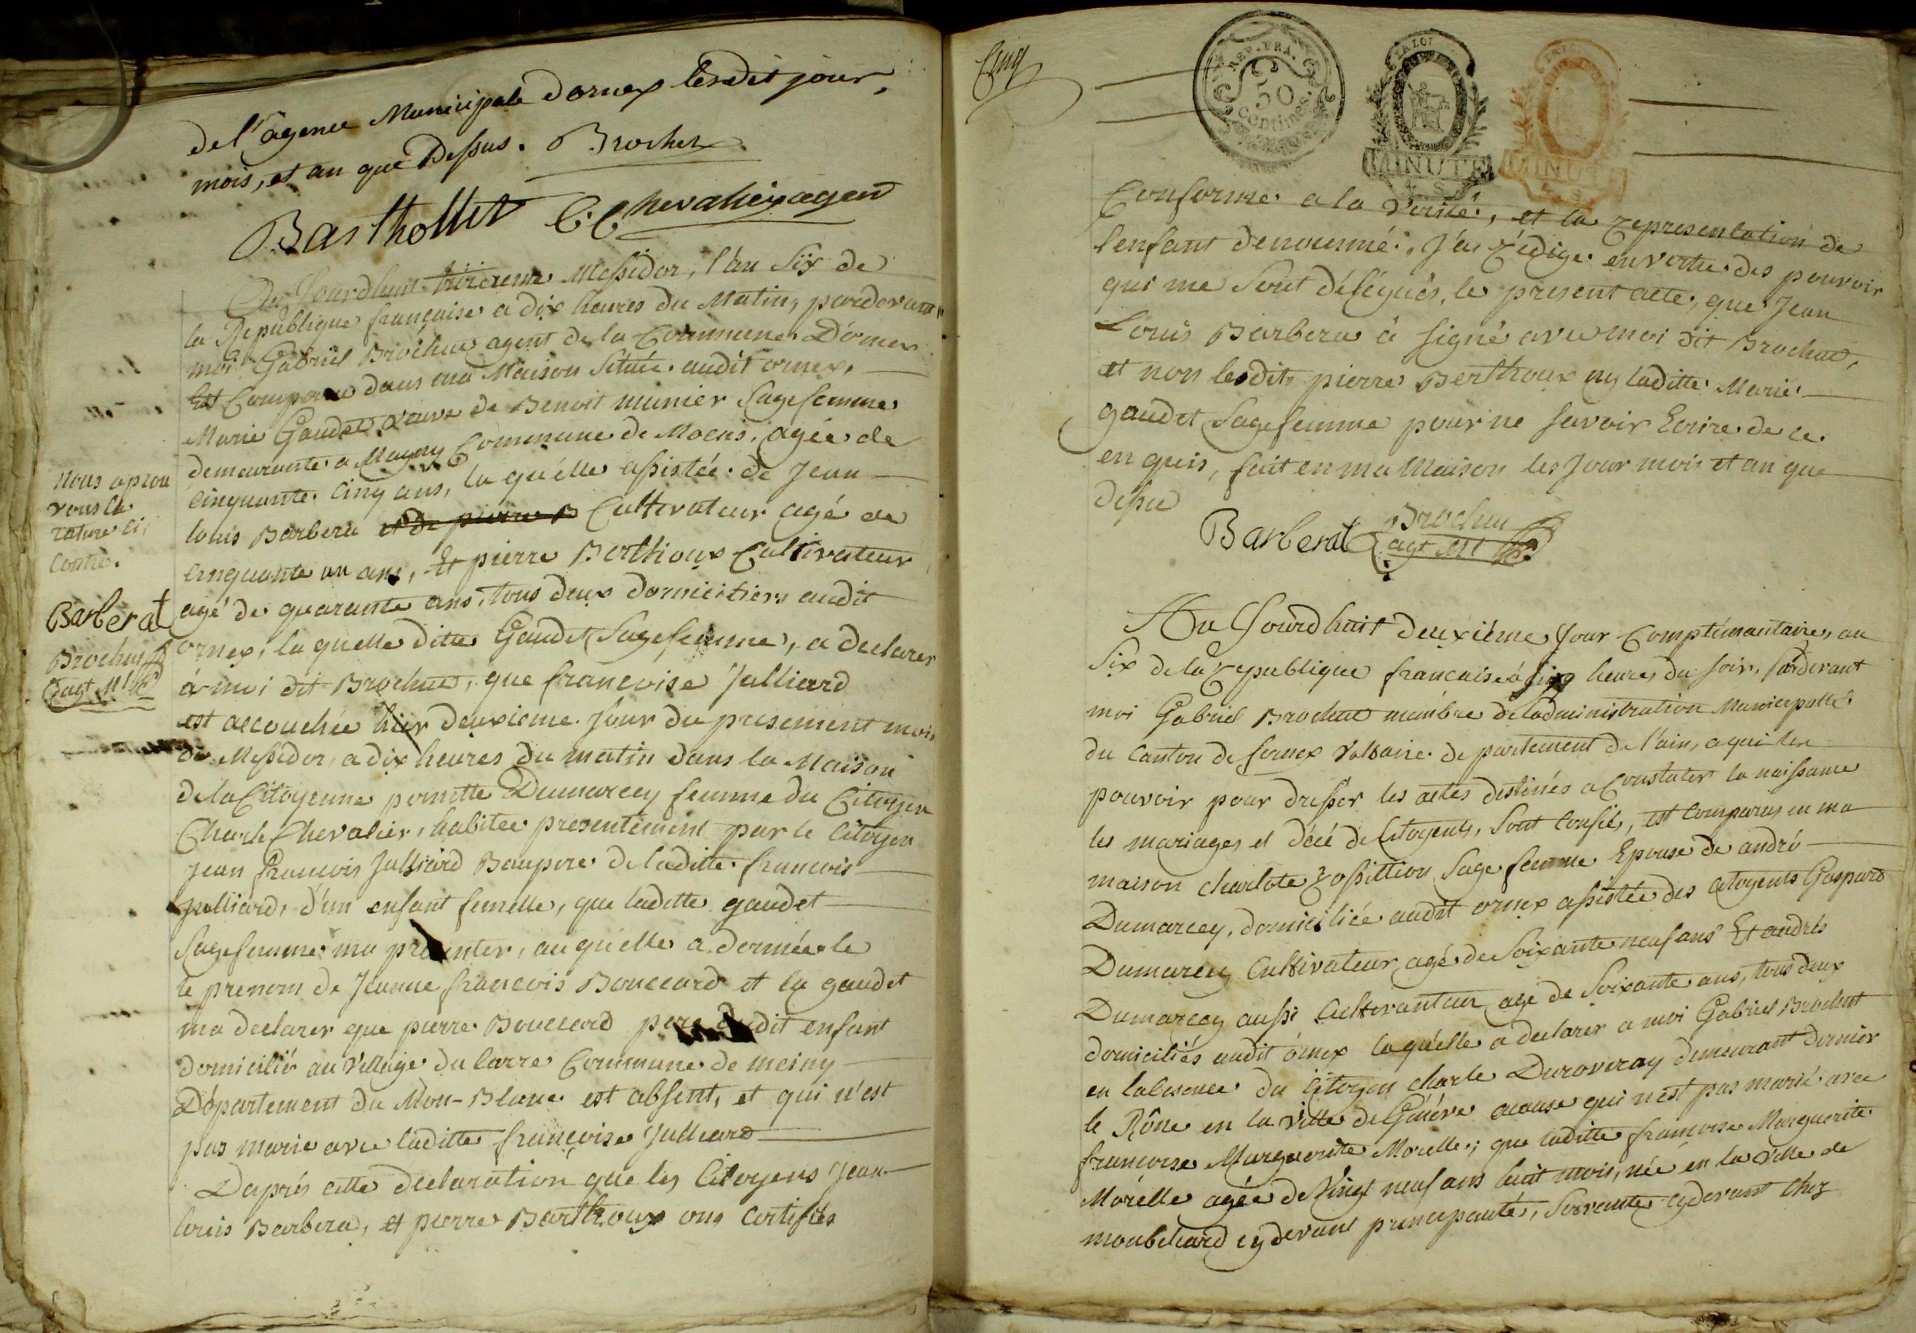 de l'agence Municipale Dornex lesdit jour,
mois, et an que Dessus. Brochet
Barthollet C. Chevalier agent
Au Jourdhuit troizieme Messidor, l'an Six de
la Republique française a dix heures du Matin, pardevant
moi Gabriel Brochue agent de la Commune D'ornex
Est Comparue dans ma Maison Située audit ornex,
Marie Gaudet veuve de Benoit munier Sagefemme
demeurante a Magny Commune de Moens, agée de
Cinquante Cinq ans, la quélle assistée de Jean
louis Barbera et de pierre B Cultivateur agé de
Cinquante un ans, Et pierre Berthoux Cultivateur
agé de quarante ans, tous deux domicitiers audit
ornex, la quelle ditte Gaudet Sagefemme, a declarer
à moi dit Brochue, que francoise Julliard
est accouchée hier deuxieme Jour du presement mois
de Messidor, a dix heures du matin dans la Maison
de la Citoyenne pernette Dumarcey femme du Citoyen
Charle Chevalier, habitée presentement par le Citoyen
Jean francois Julliard Beaupere de laditte francois
Julliard, d'un enfant femelle, que laditte gaudet
Sagefemme ma presenter, au quélle a donnée le
le prenom de Jeanne francois Bouccard et la gaudet
ma declarer que pierre Bouccard pere dudit enfant
domicilié au village du larre Commune de meiny
Département du Mon-Blanc est absent, et qui n'est
pas marie avec laditte françoise Julliard
Daprés cette declaration que les Citoyens Jean
louis Barbera, et pierre Berthoux ons Certifiés
nous aprou
vons la
rature ci
Contre.
Barberat
Brochut
agt Ml
Cinq
REP. FRA.
50
Centimes
LA LOI
MINUTE
MINUTE
Conforme a la verité, et la representation de
l'enfant denommé, J'ai rédigé en vertu des pouvoir
qui me Sont délégués, le present acte, que Jean
Louis Barbera à Signé avec moi dit Brochue,
et non lesdit pierre Berthoux ny laditte Marie
gaudet Sagefemme pour ne savoir Ecrire de ce
enquis, fait en ma Maison les Jour mois et an que
desu
Barberat Brochut
agt Ml
Au Jourdhuit deuxiéme Jour Complémantaire, an
Six de la republique francaise à cinq heures du Soir, pardevant
moi Gabriel Brochue membre de l'administration Municipalle
du Canton de fernex Voltaire departement de l'ain, a qui les
pouvoir pour dresser les actes destinés a Constater la naissance
les mariages et décé de Citoyents, Sont Confiés, est Comparus en ma
maison Charlote rossillion Sage femme Epouse de andré
Dumarcey, domiciliée audit ornex assistée des Citoyents Gaspard
Dumarcey Cultivateur agé de Soixante neuf ans Et andrés
Dumarcey aussi Cultivanteur age de Soixante ans, tous deux
domiciliés audit ornex laquélle a declarer a moi Gabriel Brochut
en labsence du Citoyen Charle Duroveray demeurant dernier
le Rône en la ville de Généve acause qui n'est pas marié avec
francoise Marguerite Morelle; que laditte francoise Marguerite
Morelle agée de Vingt neuf ans huit mois, née en la Ville de
monbeliard cydevant principauté, Servante cydevant Chéz